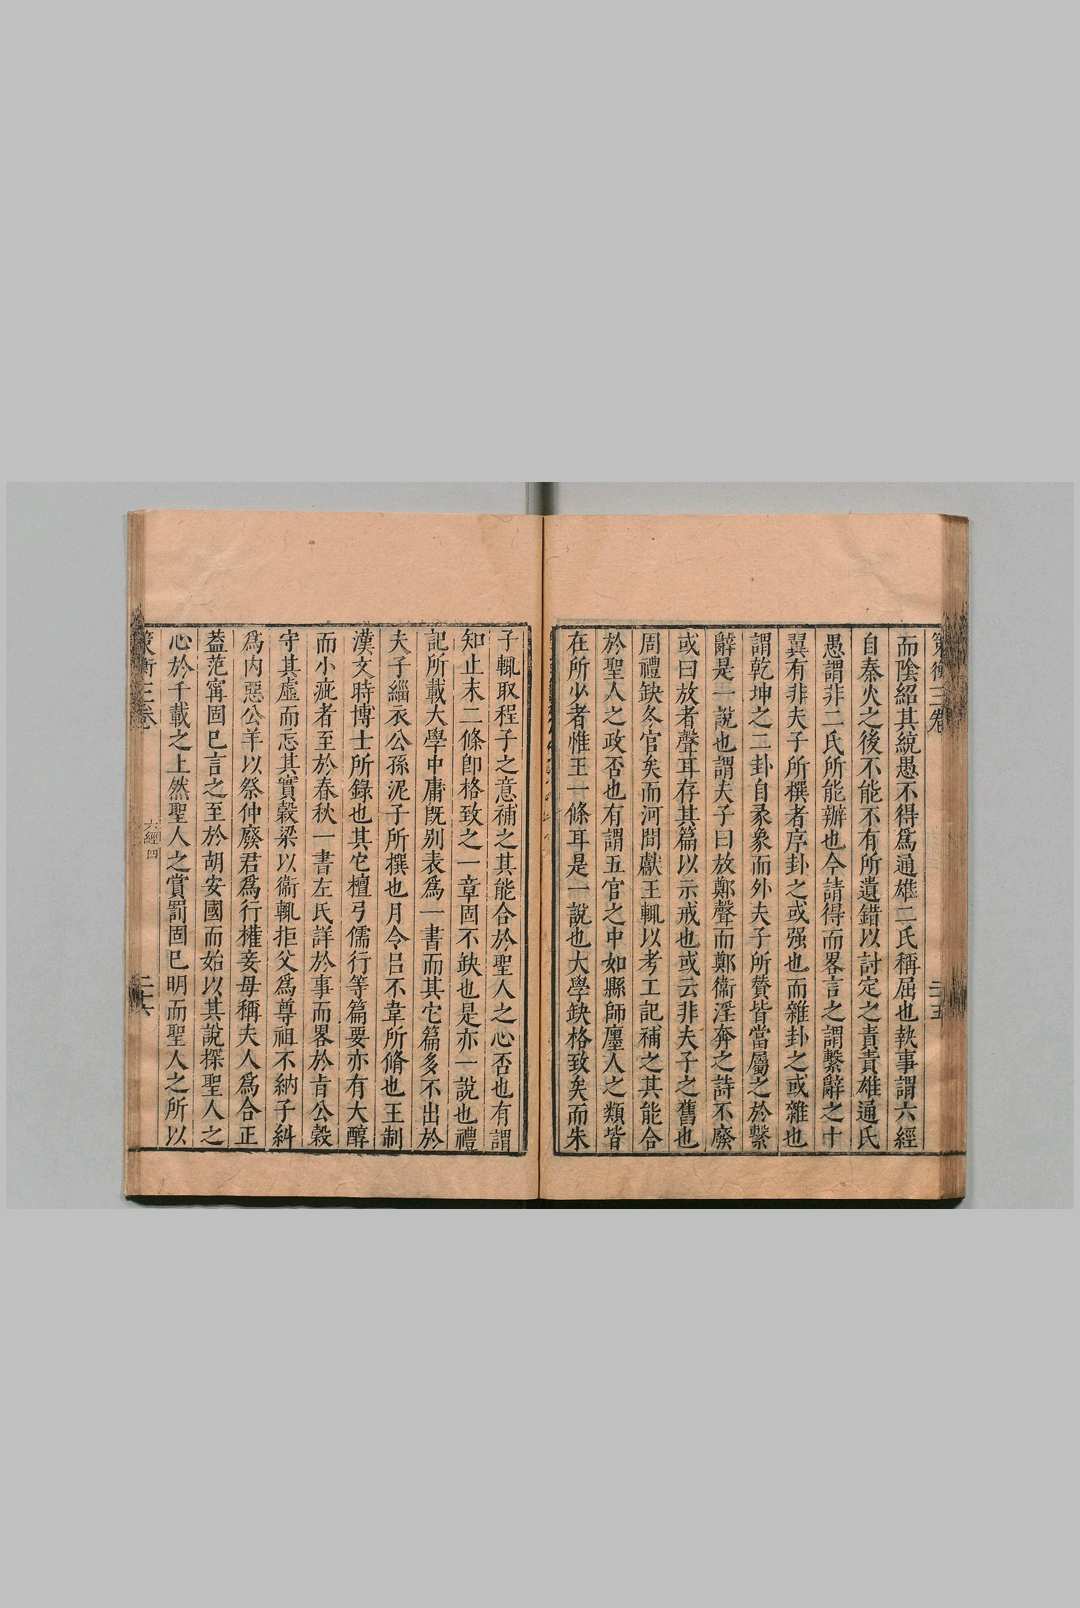 策衡三卷
二十五
而陰紹其統愚不得爲通雄二氏稱屈也執事謂六經
自秦火之後不能不有所遺錯以討定之責責雄通氏
愚謂非二氏所能辦也今請得而畧言之謂繫辭之十
翼有非夫子所撰者序卦之或强也而雜卦之或雜也
謂乾坤之二卦自彖象而外夫子所贊皆當屬之於繫
辭是一說也謂夫子曰放鄭聲而鄭衞淫奔之詩不廢
或曰放者聲耳存其篇以示戒也或云非夫子之舊也
周禮缺冬官矣而河間獻王輒以考工記補之其能合
於聖人之政否也有謂五官之中如縣師廛人之類皆
在所少者惟王一條耳是一說也大學缺格致矣而朱
子輒取程子之意補之其能合於聖人之心否也有謂
知止末二條卽格致之一章固不缺也是亦一說也禮
記所載大學中庸旣别表爲一書而其它篇多不出於
夫子緇衣公孫泥子所撰也月令呂不韋所脩也王制
漢文時博士所錄也其它檀弓儒行等篇要亦有大醇
而小疵者至於春秋一書左氏詳於事而畧於㫖公穀
守其虛而忘其實穀梁以衞輒拒父爲尊祖不納子糾
爲内惡公羊以祭仲廢君爲行權妾母稱夫人爲合正
葢范甯固巳言之至於胡安國而始以其說探聖人之
心於千載之上然聖人之賞罰固巳明而聖人之所以
策衡三卷
六經四
二十六